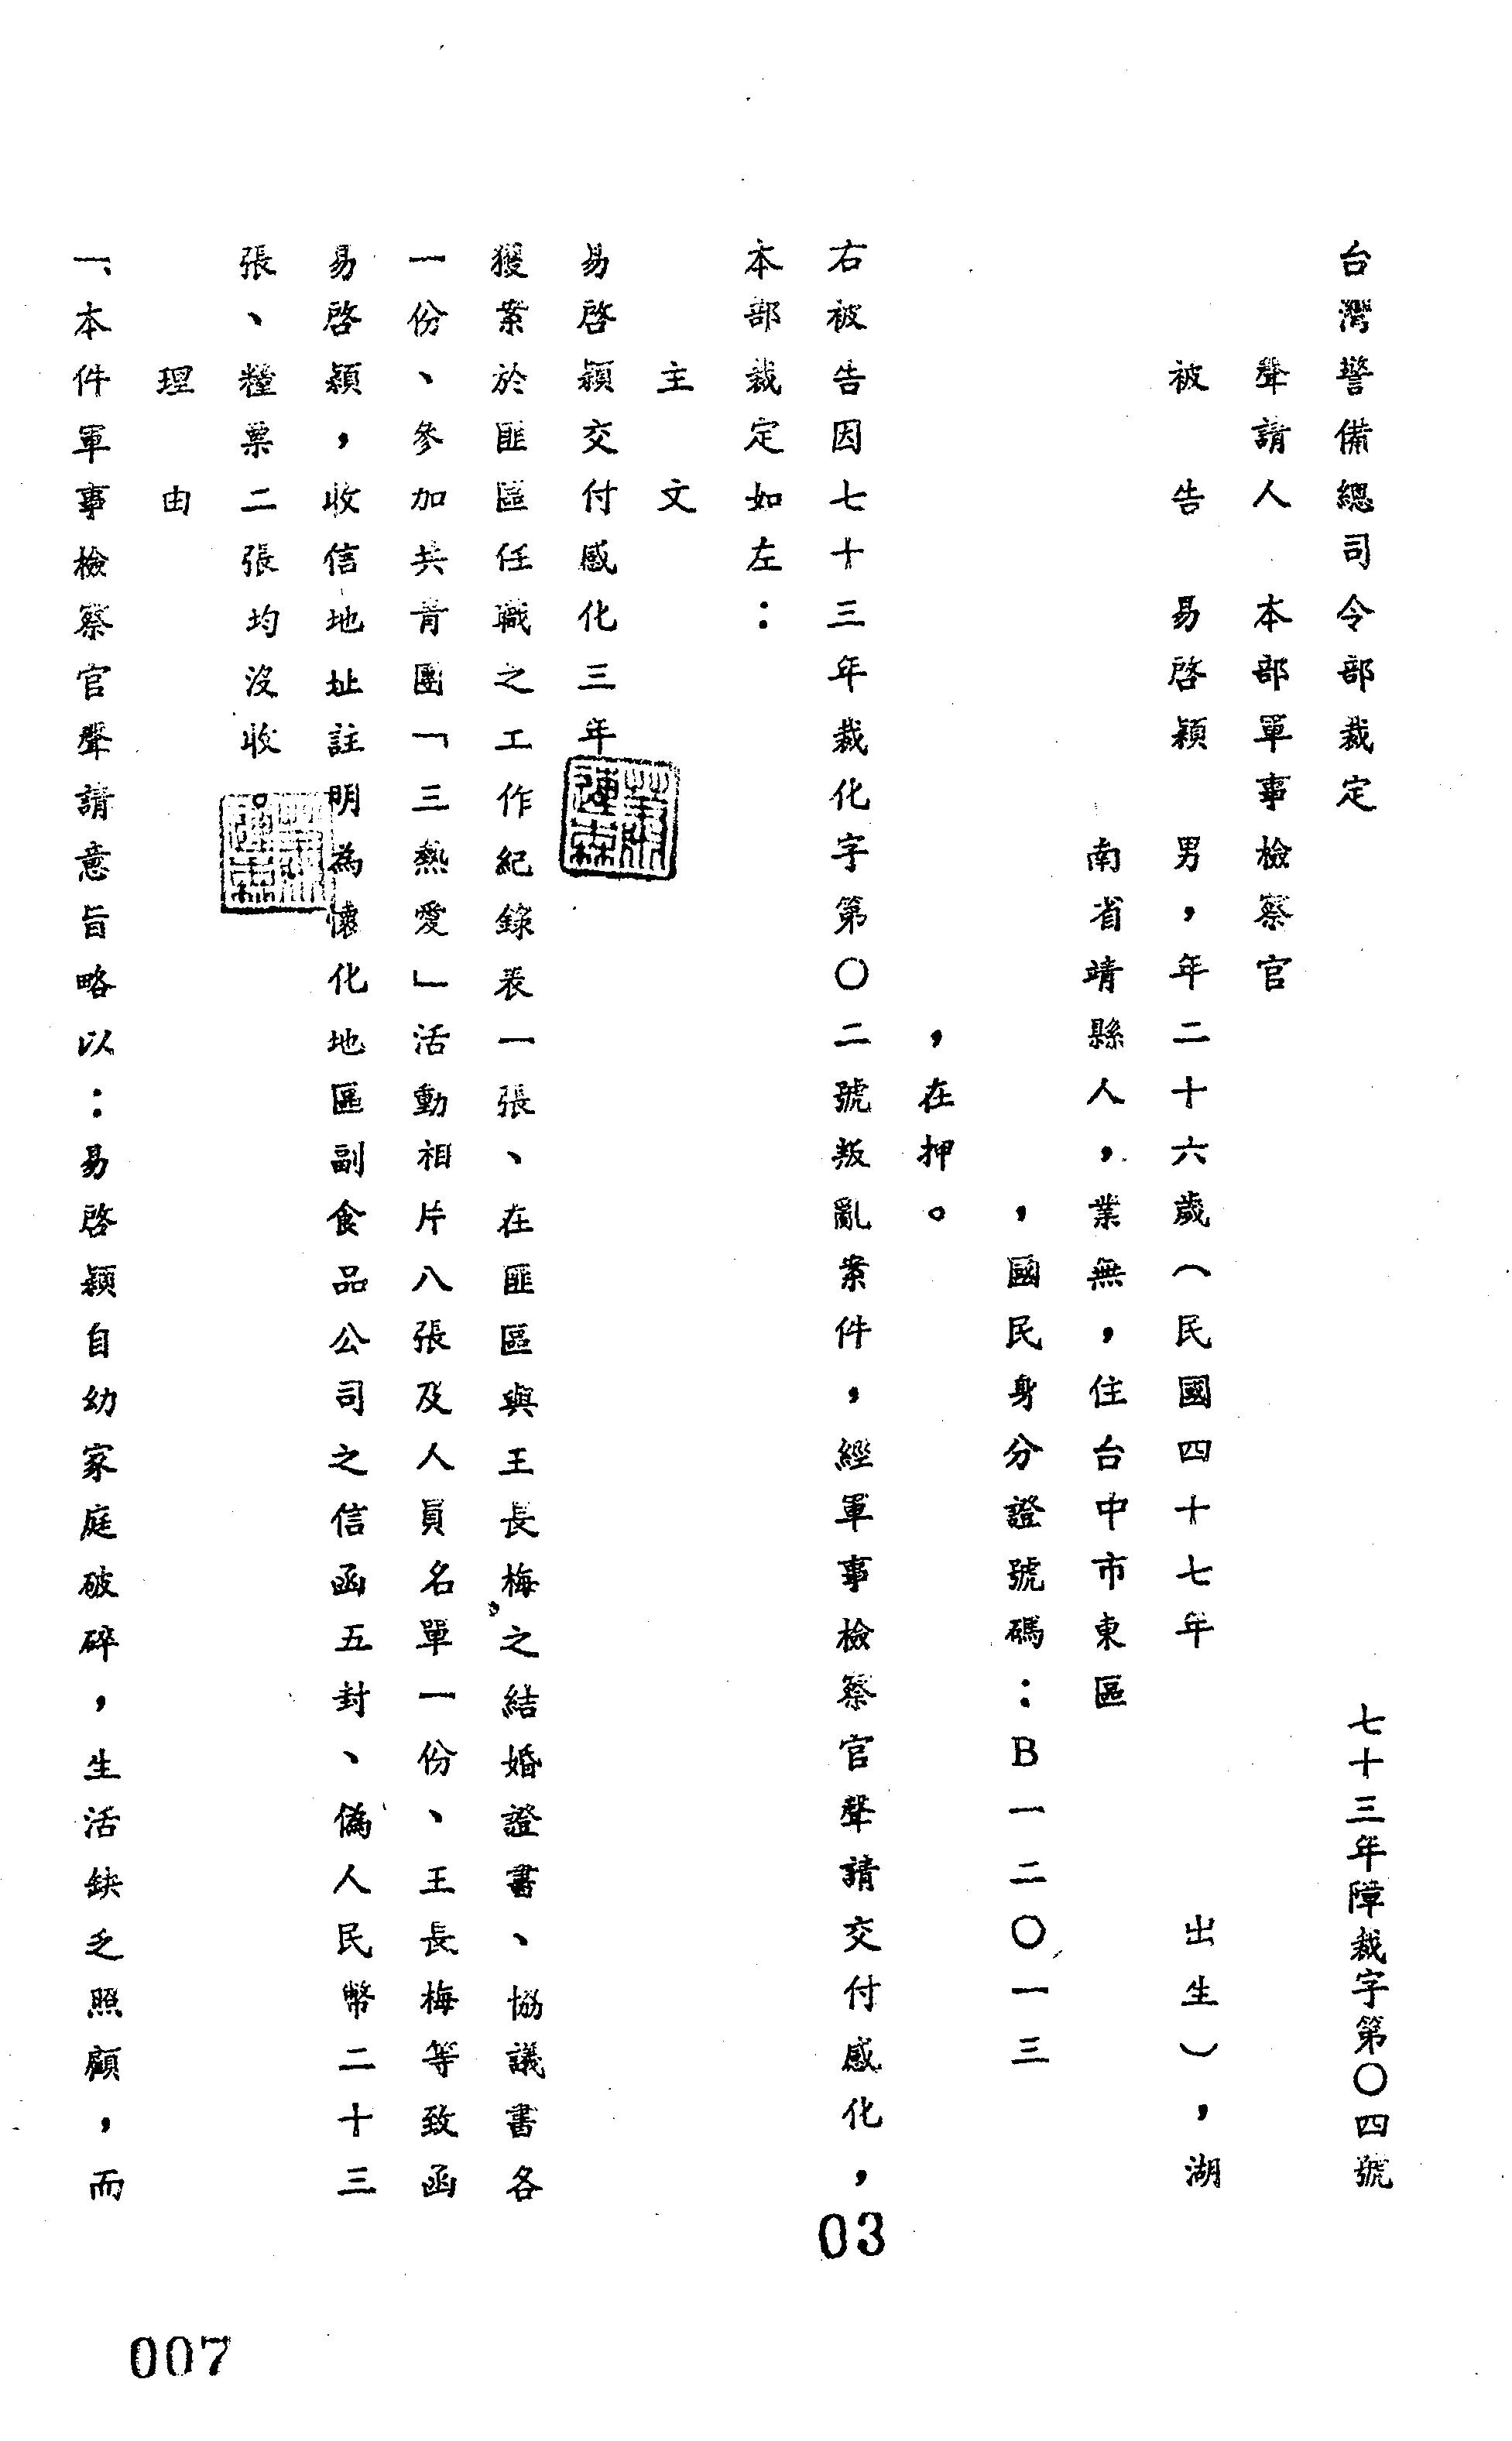 台灣警備總司令部裁定
七十三年障裁字第〇四號
聲請人 本部軍事檢察官
被告 易啓穎 男，年二十六歲（民國四十七年 出生），湖
南省靖縣人，業無，住台中市東區
，國民身分證號碼：B一二〇一三
，在押。
右被告因七十三年裁化字第〇二號叛亂案件，經軍事檢察官聲請交付感化，
本部裁定如左：
主文
易啓穎交付感化三年
獲案於匪區任職之工作紀錄表一張、在匪區與王長梅之結婚證書、協議書各
一份、參加共青團「三熱愛」活動相片八張及人員名單一份、王長梅等致函
易啓穎，收信地址註明為懷化地區副食品公司之信函五封、偽人民幣二十三
張、糧票二張均沒收。
理由
一、本件軍事檢察官聲請意旨略以：易啓穎自幼家庭破碎，生活缺乏照顧，而
03
007